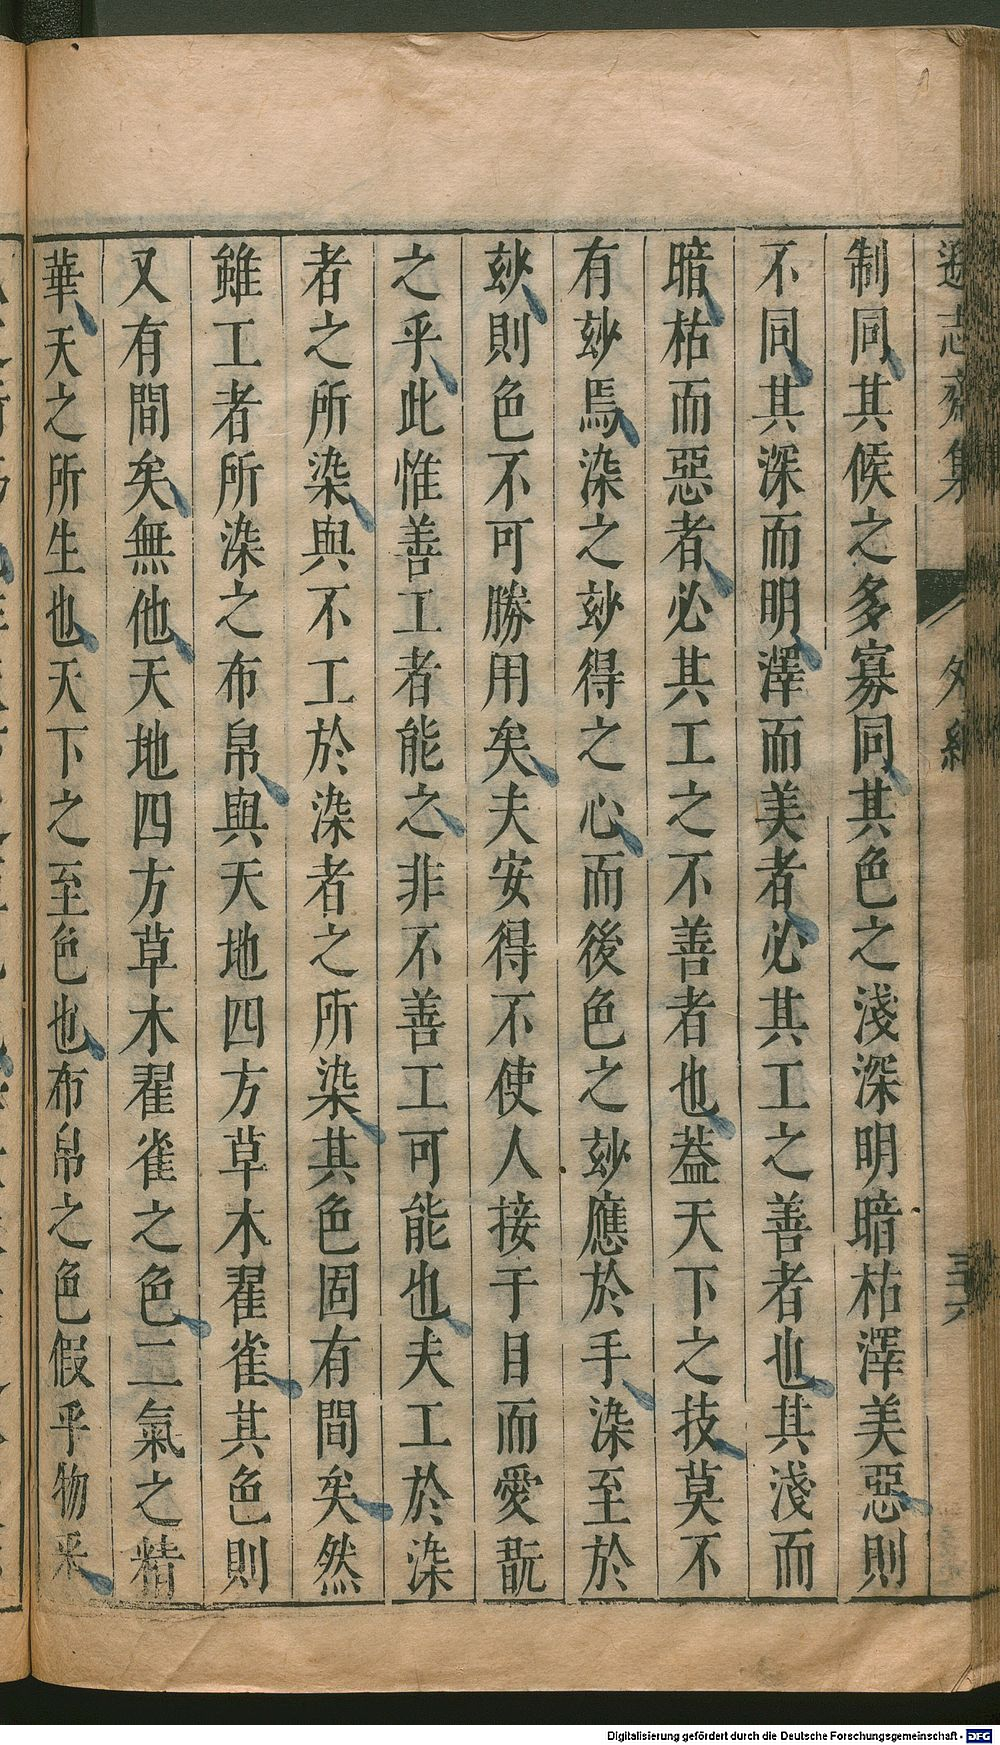 遜志齋集
外紀
制同其候之多寡同其色之淺深明暗枯澤美惡則
不同其深而明澤而美者必其工之善者也其淺而
暗枯而惡者必其工之不善者也葢天下之技莫不
有玅焉染之玅得之心而後色之玅應於手染至於
玅則色不可勝用矣夫安得不使人接于目而愛翫
之乎此惟善工者能之非不善工可能也夫工於染
者之所染與不工於染者之所染其色固有間矣然
雖工者所染之布帛與天地四方草木翟雀其色則
又有間矣無他天地四方草木翟雀之色二氣之精
華天之所生也天下之至色也布帛之色假乎物采
Digitalisierung gefördert durch die Deutsche Forschungsgemeinschaft - DFG